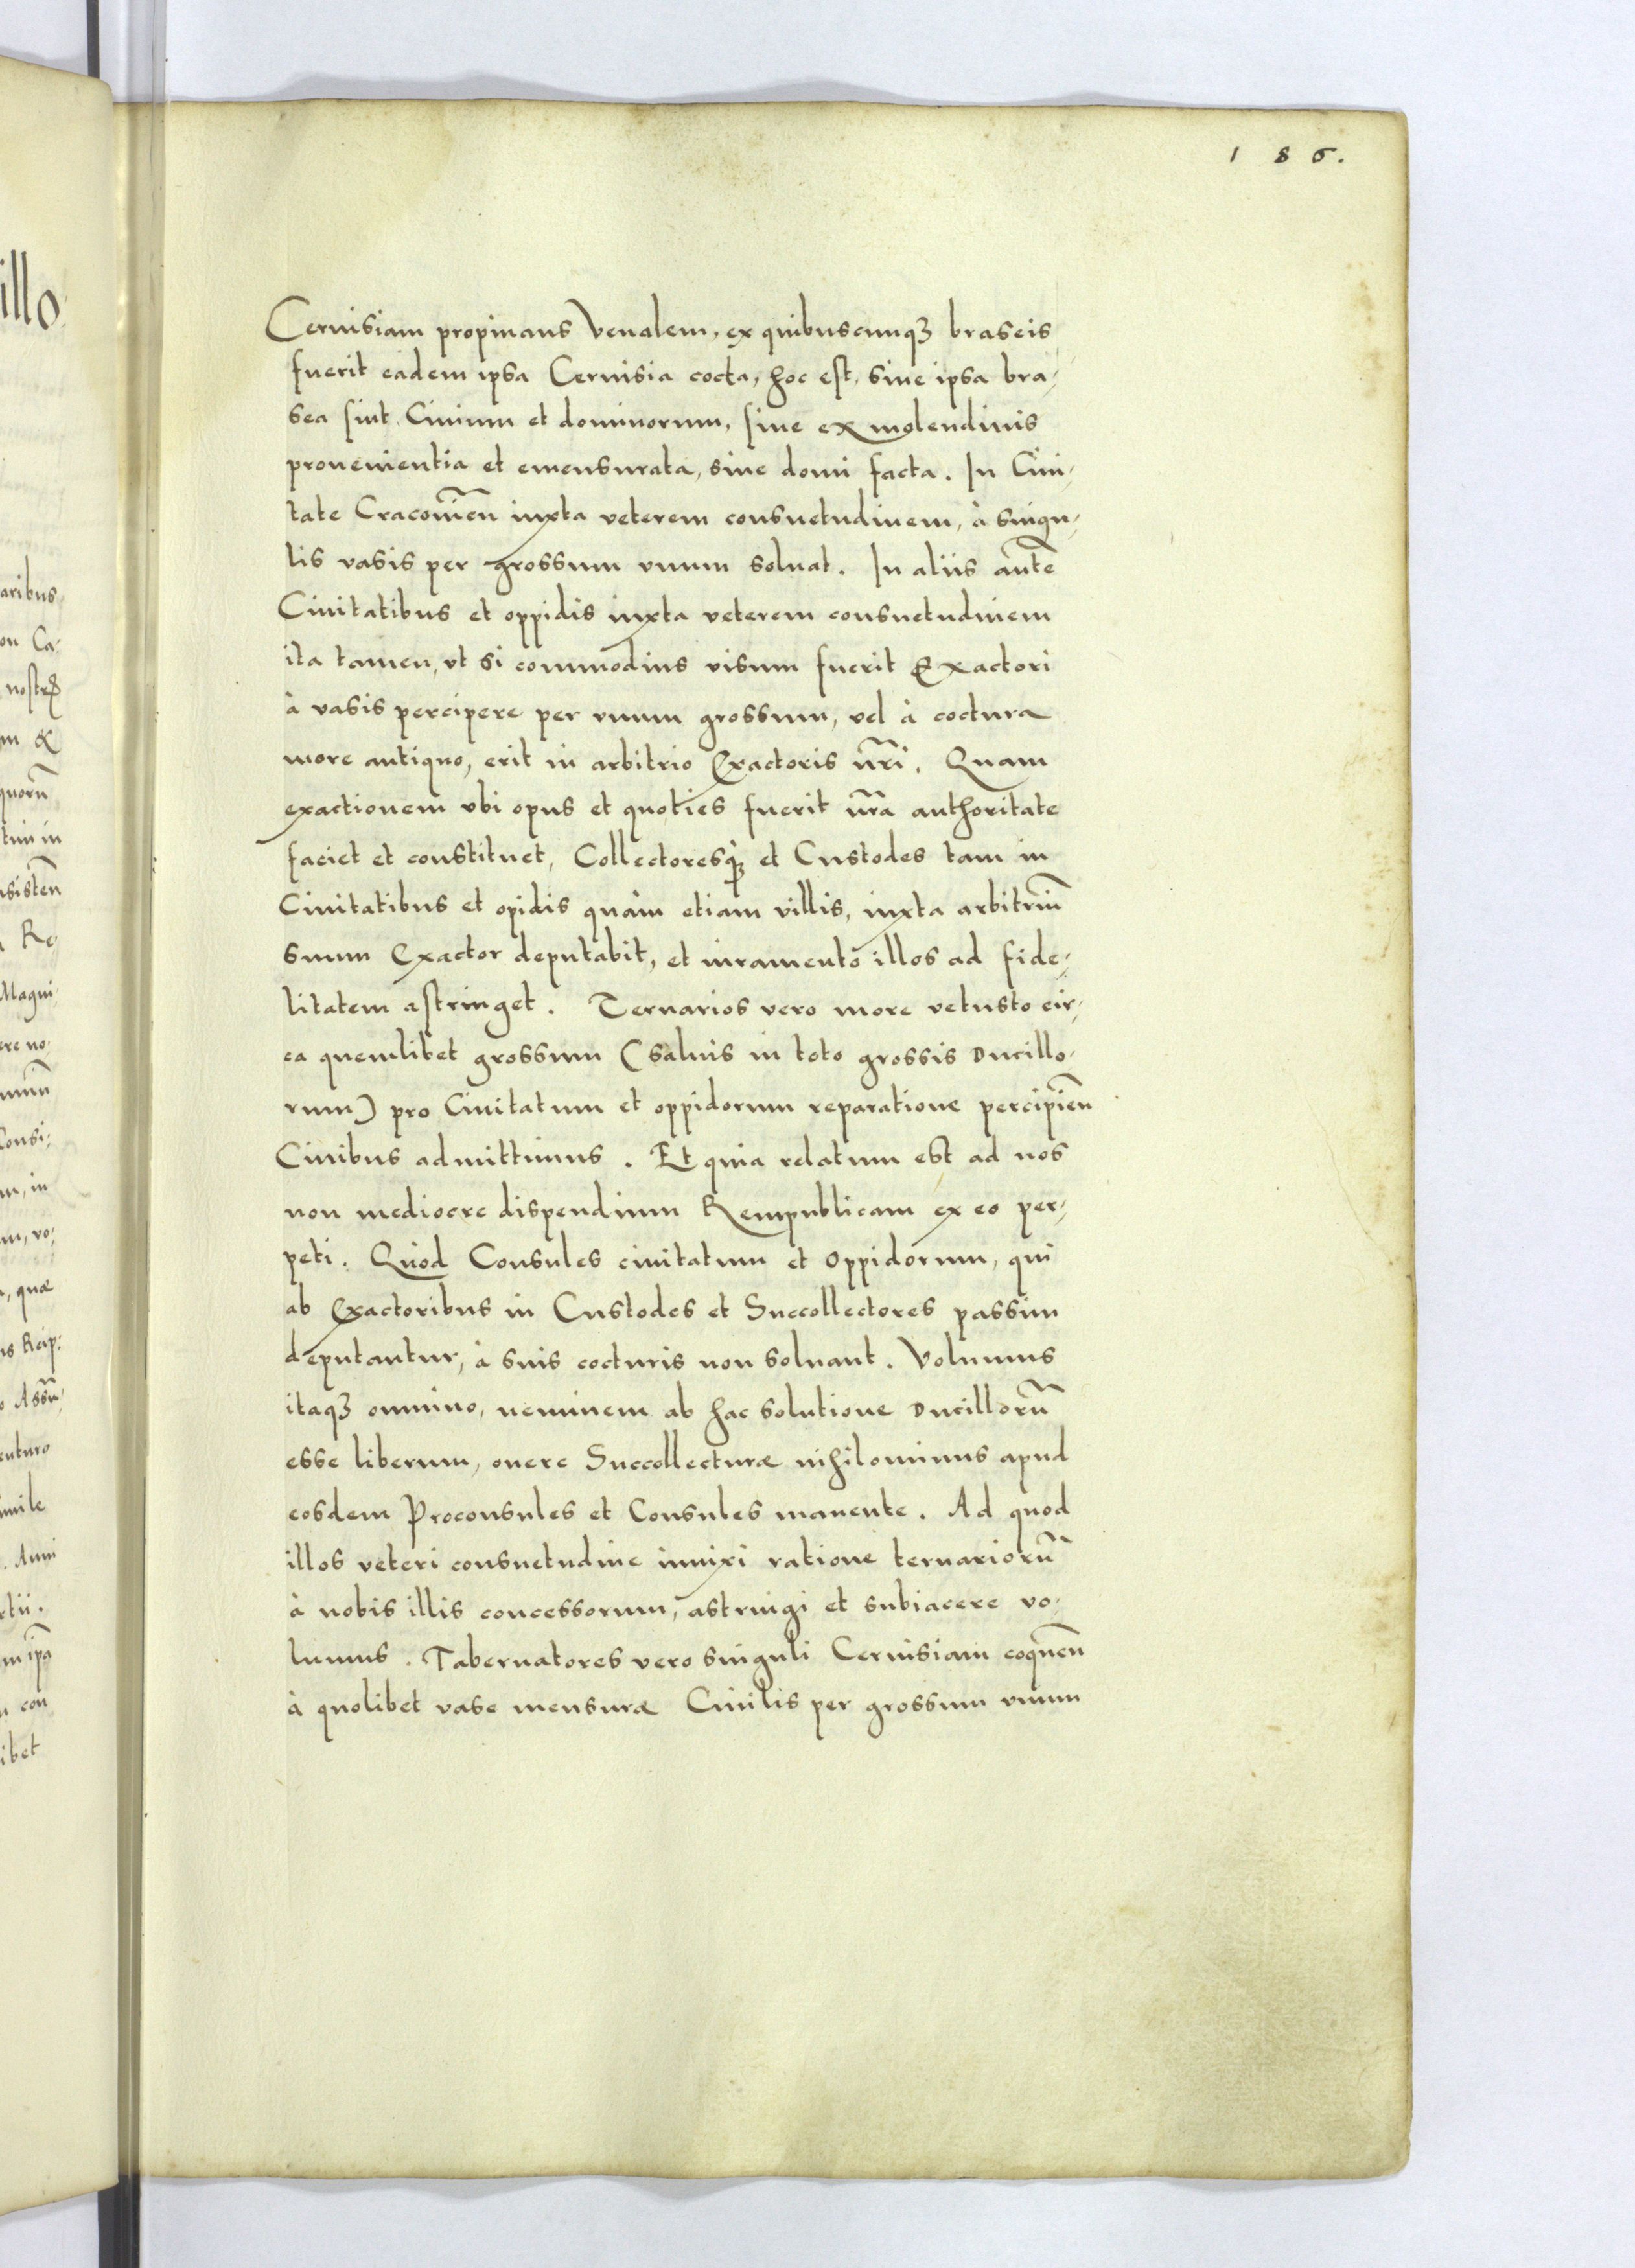 186.
Ceruisiam propinans Venalem, ex quibuscunqꝫ braseis
fuerit eadem ipsa Ceruisia cocta, hoc est, siue ipsa bra-
sea sint Ciuium et dominorum, siue ex molendinis
prouenientia et emensurata, siue domi facta. In Ciui-
tate Cracouien̄ iuxta veterem consuetudinem, à singu-
lis vasis per grossum vnum soluat. In aliis aut̄e
Ciuitatibus et oppidis iuxta veterem consuetudinem
ita tamen, vt si commodius visum fuerit Exactori
à vasis percipere per vnum grossum, vel à coctura
more antiquo, erit in arbitrio Exactoris nr̄i. Quam
exactionem vbi opus et quoties fuerit nr̄a authoritate
faciet et constituet, Collectoresqꝫ et Custodes tam in
Ciuitatibus et opidis quàm etiam villis, iuxta arbitriū
suum Exactor deputabit, et iuramento illos ad fide-
litatem astringet. Ternarios vero more vetusto cir-
ca quemlibet grossum (saluis in toto grossis Ducillo-
rum) pro Ciuitatum et oppidorum reparatione percipien̄
Ciuibus admittimus. Et quia relatum est ad nos
non mediocre dispendium Rempublicam ex eo per-
peti. Quod Consules ciuitatum et Oppidorum, qui
ab Exactoribus in Custodes et Succollectores passim
deputantur, à suis cocturis non soluant. Volumus
itaqꝫ omnino, neminem ab hac solutione Ducillorū
esse liberum, onere Succollecturæ nihilominus apud
eosdem Proconsules et Consules manente. Ad quod
illos veteri consuetudine innixi ratione ternariorū
à nobis illis concessorum, astringi et subiacere vo-
lumus. Tabernatores vero singuli Ceruisiam coquen̄
à quolibet vase mensuræ Ciuilis per grossum vnum